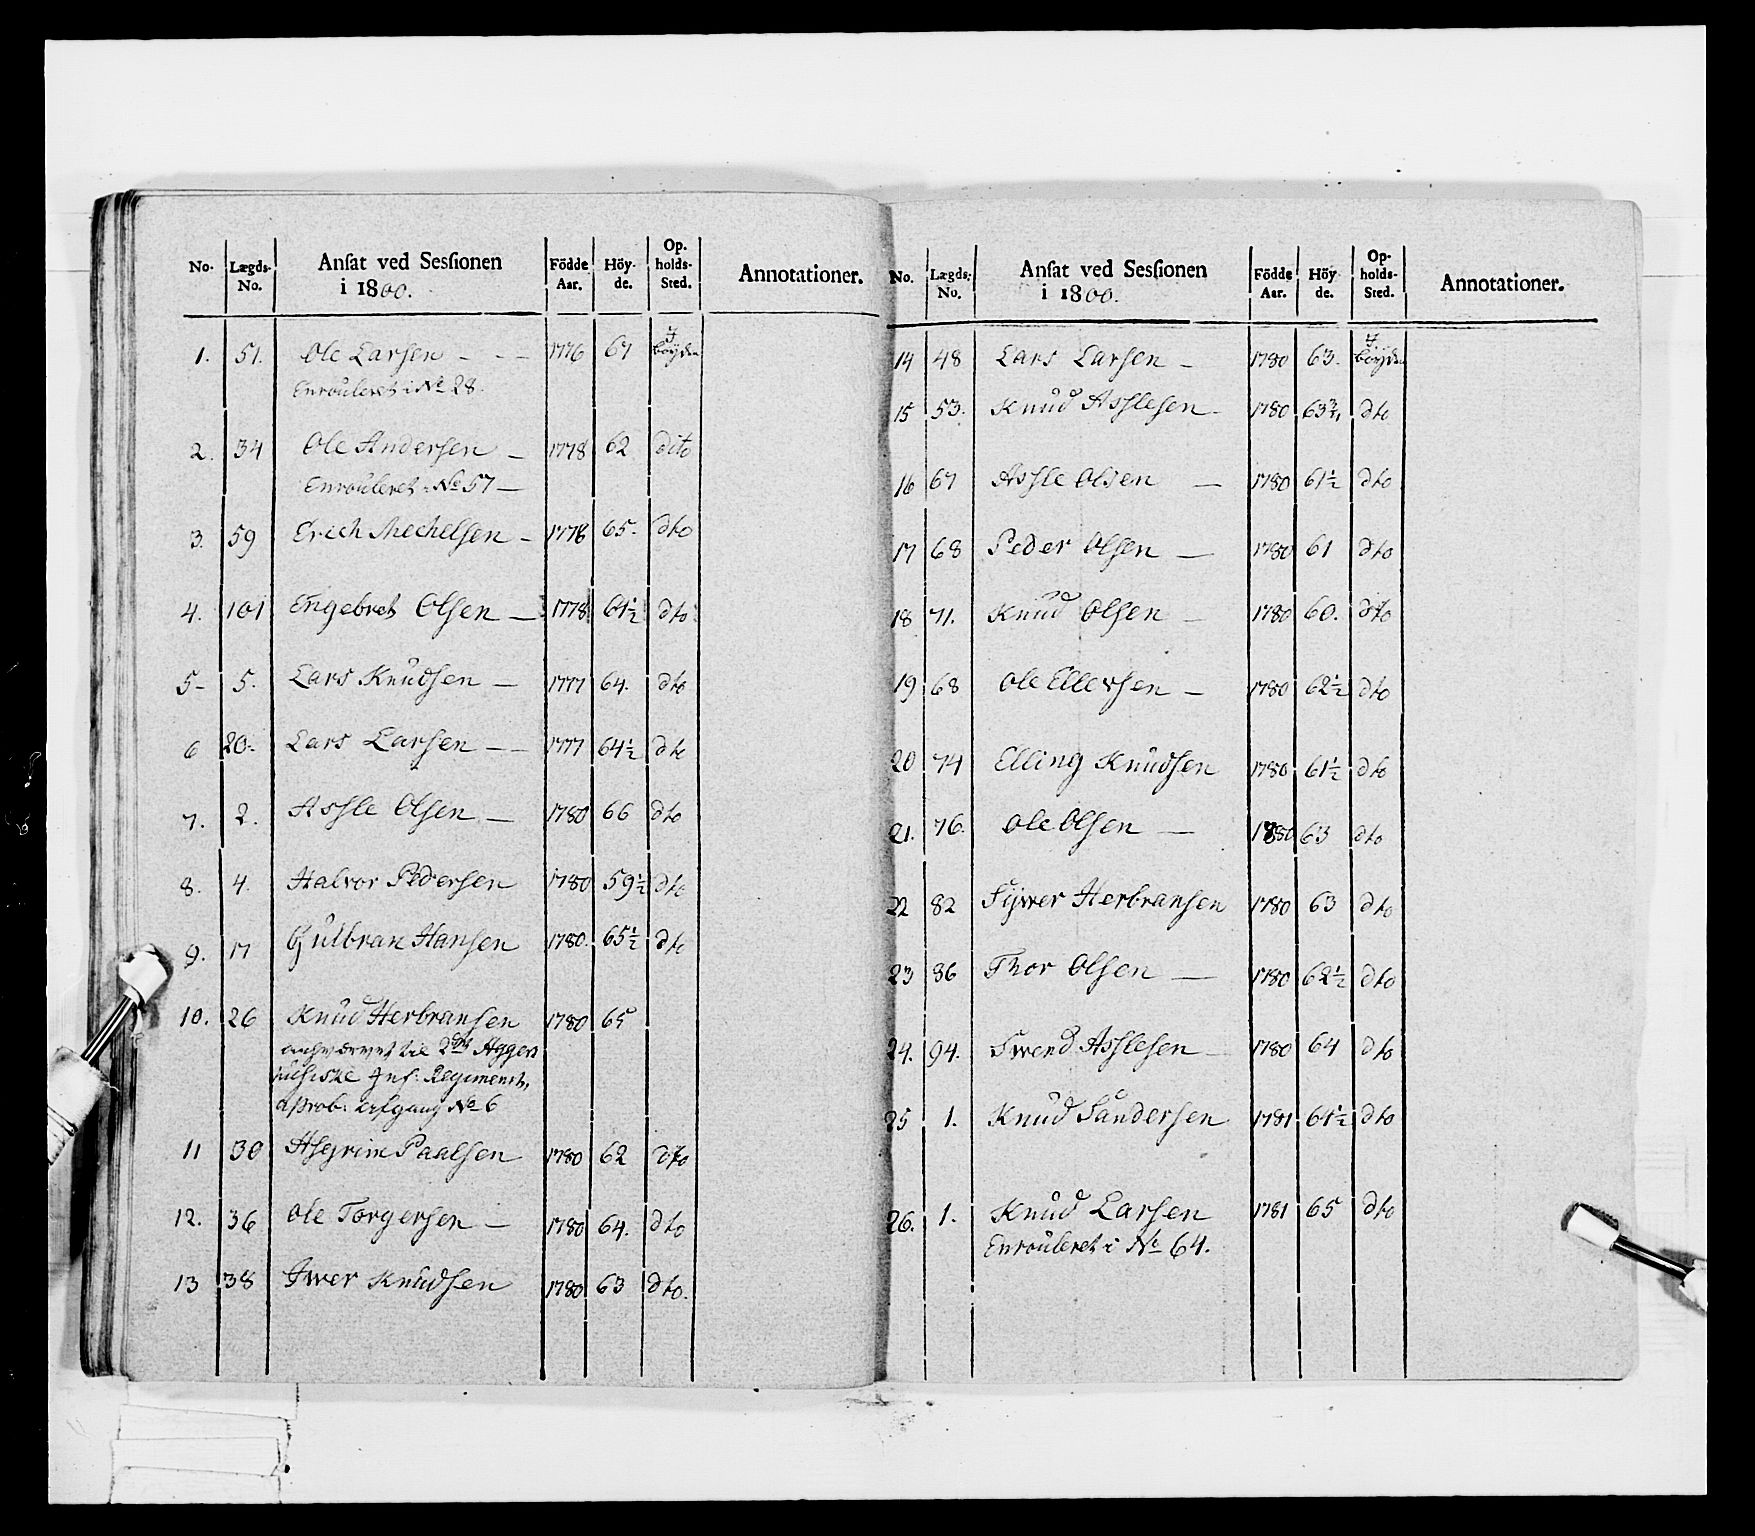 No. Lægds-No. Ansat ved Sessionen i 1800. Födde Aar. Höyde. Opholds-Sted. Annotationer.
1. 51. Ole Larsen - - - 1776 67 I böyden
Enrouleret i No 28.
2. 34 Ole Andersen - 1778 62 dito
Enrouleret i No 57 -
3. 59 Erich Mechelsen - 1778 65. dto
4. 101 Engebret Olsen - 1778 61½ dto
5- 5. Lars Knudsen - 1777 64. dto
6 20- Lars Larsen - - 1777 64½ dto
7. 2. Aslle Olsen - 1780 66 dto
8. 4. Halvor Pedersen 1780 59½ dto
9. 17 Gulbran Hansen 1780. 65½ dto
10. 26 Knud Herbransen 1780 65
til 2det Aggers
husiske Inf: Regiment,
aprob: Afgang No 6
11 30 Asgrim Paalsen 1780 62 dto
12. 36 Ole Torgersen - 1780 64. dto
13 38 Iwer Knudsen 1780 63 dto.
No. Lægds-No. Ansat ved Sessionen i 1800. Födde Aar. Höyde. Opholds-Sted. Annotationer.
14 48 Lars Larsen - 1780 63. I böyden
15 53. Knud Asslesen - 1780 63¾ dto
16 67 Assle Olsen - 1780 61½ dto
17 68 Peder Olsen - 1780 61 dto
18 71. Knud Olsen - 1780 60. dto
19 68 Ole Ellevsen - 1780 62½ dto
20 74 Elling Knudsen 1780 61½ dto
21. 76. Ole Olsen - 1780 63 dto
22 82 Syver Herbransen 1780 63 dto
23 86 Thor Olsen - 1780 62½ dto
24. 94. Swend Asslesen - 1780 64 dto
25 1. Knud Sandersen 1781 61½ dto
26. 1. Knud Larsen 1781 65 dto
Enrouleret i No 64.